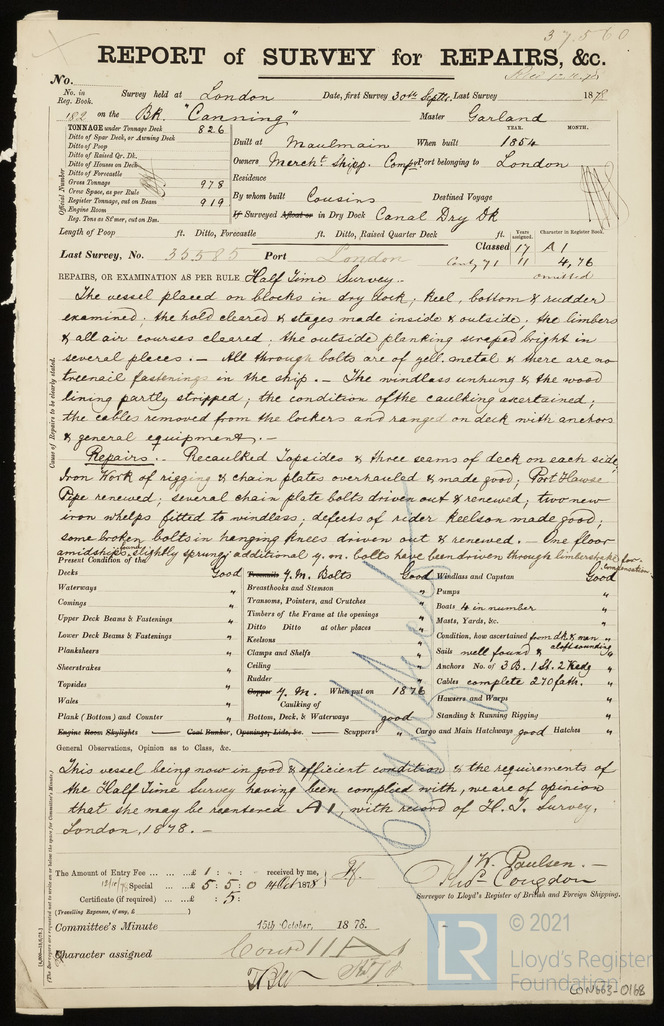 37560
REPORT of SURVEY for REPAIRS, &c.
No.
No. in Reg. Book. Survey held at London Date, first Survey 30th Septr. Last Survey 1878
182 on the Bk. "Canning" Master Garland
TONNAGE under Tonnage Deck 826
Ditto of Spar Deck, or Awning Deck
Ditto of Poop
Ditto of Raised Qr. Dk.
Ditto of Houses on Deck
Ditto of Forecastle
Gross Tonnage 978
Crew Space, as per Rule
Register Tonnage, cut on Beam 919
Engine Room
Reg. Tons as St'mer, cut on Bm.
Official Number
YEAR. MONTH.
Built at Maulmain When built 1854
Owners Mercht. Shipp. Compy. Port belonging to London
Residence
By whom built Cousins Destined Voyage
If Surveyed Afloat or in Dry Dock Canal Dry Dk
Length of Poop ft. Ditto, Forecastle ft. Ditto, Raised Quarter Deck ft. Years assigned. Character in Register Book.
Classed 17 A1
Last Survey, No. 35585 Port London Contd. 71 11 4,76
omitted
REPAIRS, OR EXAMINATION AS PER RULE Half Time Survey.
The vessel placed on blocks in dry dock; keel, bottom & rudder
examined; the hold cleared & stages made inside & outside; the limbers
& all air courses cleared; the outside planking scraped bright in
several places. — All through bolts are of yell. metal & there are no
treenail fastenings in the ship. — The windlass unhung & the wood
lining partly stripped; the condition of the caulking ascertained;
the cables removed from the lockers and ranged on deck with anchors
& general equipment. —
Repairs. Recaulked Topsides & three seams of deck on each side,
Iron work of rigging & chain plates overhauled & made good; Port Hawse
Pipe renewed; several chain plate bolts driven out & renewed; two new
iron whelps fitted to windlass; defects of rider keelson made good;
some broken bolts in hanging knees driven out & renewed. — One floor
amidships found slightly sprung; additional y. m. bolts have been driven through limberstrake for compensation.
Cause of Repairs to be clearly stated.
Present Condition of the
Decks Good
Waterways "
Comings "
Upper Deck Beams & Fastenings "
Lower Deck Beams & Fastenings "
Planksheers "
Sheerstrakes "
Topsides "
Wales "
Plank (Bottom) and Counter "
Treenails Y. M. Bolts Good
Breasthooks and Stemson "
Transoms, Pointers, and Crutches "
Timbers of the Frame at the openings "
Ditto Ditto at other places "
Keelsons "
Clamps and Shelfs "
Ceiling "
Rudder "
Copper Y. M. When put on 1876
Caulking of
Bottom, Deck, & Waterways good
Windlass and Capstan Good
Pumps "
Boats 4 in number "
Masts, Yards, &c. "
Condition, how ascertained from dk & man aloft sounding "
Sails well found & "
Anchors No. of 3 B. 1 St. 2 Kedg "
Cables complete 270 fath. "
Hawsers and Warps "
Standing & Running Rigging "
Engine Room Skylights Coal Bunker, Openings, Lids, &c. Scuppers " Cargo and Main Hatchways good Hatches "
General Observations, Opinion as to Class, &c.
This vessel being now in good & efficient condition & the requirements of
the Half Time Survey having been complied with, we are of opinion
that she may be reentered A1, with record of H. T. Survey,
London, 1878. —
The Amount of Entry Fee £ 1 : : received by me,
Special £ 5 : 5 : 0 14 Oct 1878
Certificate (if required) : 5 :
(Travelling Expenses, if any, £ )
W. Paulsen. —
Thos. Congdon
Surveyor to Lloyd's Register of British and Foreign Shipping.
Committee's Minute 15th October, 1878.
Character assigned Contd 11 A1
(The Surveyors are requested not to write on or below the space for Committee's Minute.)
© 2021
LR
Lloyd's Register
Foundation
LON663-0168